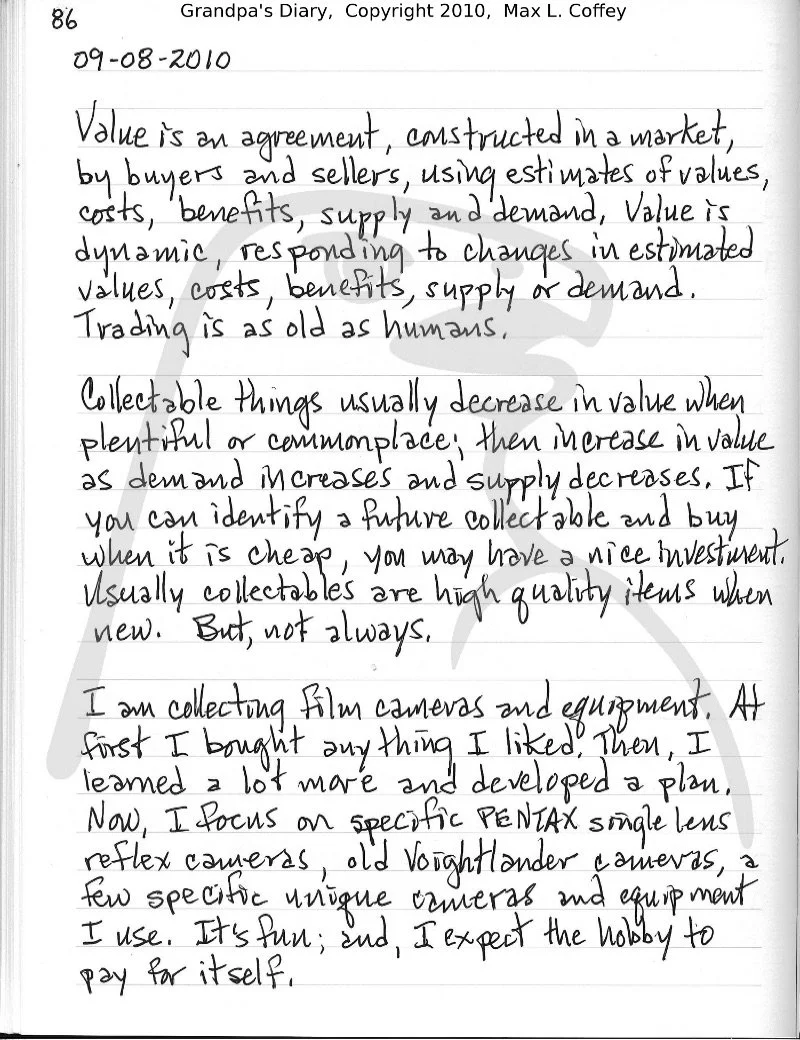 86
Grandpa's Diary, Copyright 2010, Max L. Coffey
09-08-2010
Value is an agreement, constructed in a market,
by buyers and sellers, using estimates of values,
costs, benefits, supply and demand, Value is
dynamic, responding to changes in estimated
values, costs, benefits, supply or demand.
Trading is as old as humans.
Collectable things usually decrease in value when
plentiful or commonplace; then increase in value
as demand increases and supply decreases. If
you can identify a future collectable and buy
when it is cheap, you may have a nice investment.
Usually collectables are high quality items when
new. But, not always.
I am collecting film cameras and equipment. At
first I bought anything I liked. Then, I
learned a lot more and developed a plan.
Now, I focus on specific PENTAX single lens
reflex cameras, old Voightlander cameras, a
few specific unique cameras and equipment
I use. It's fun; and, I expect the hobby to
pay for itself.